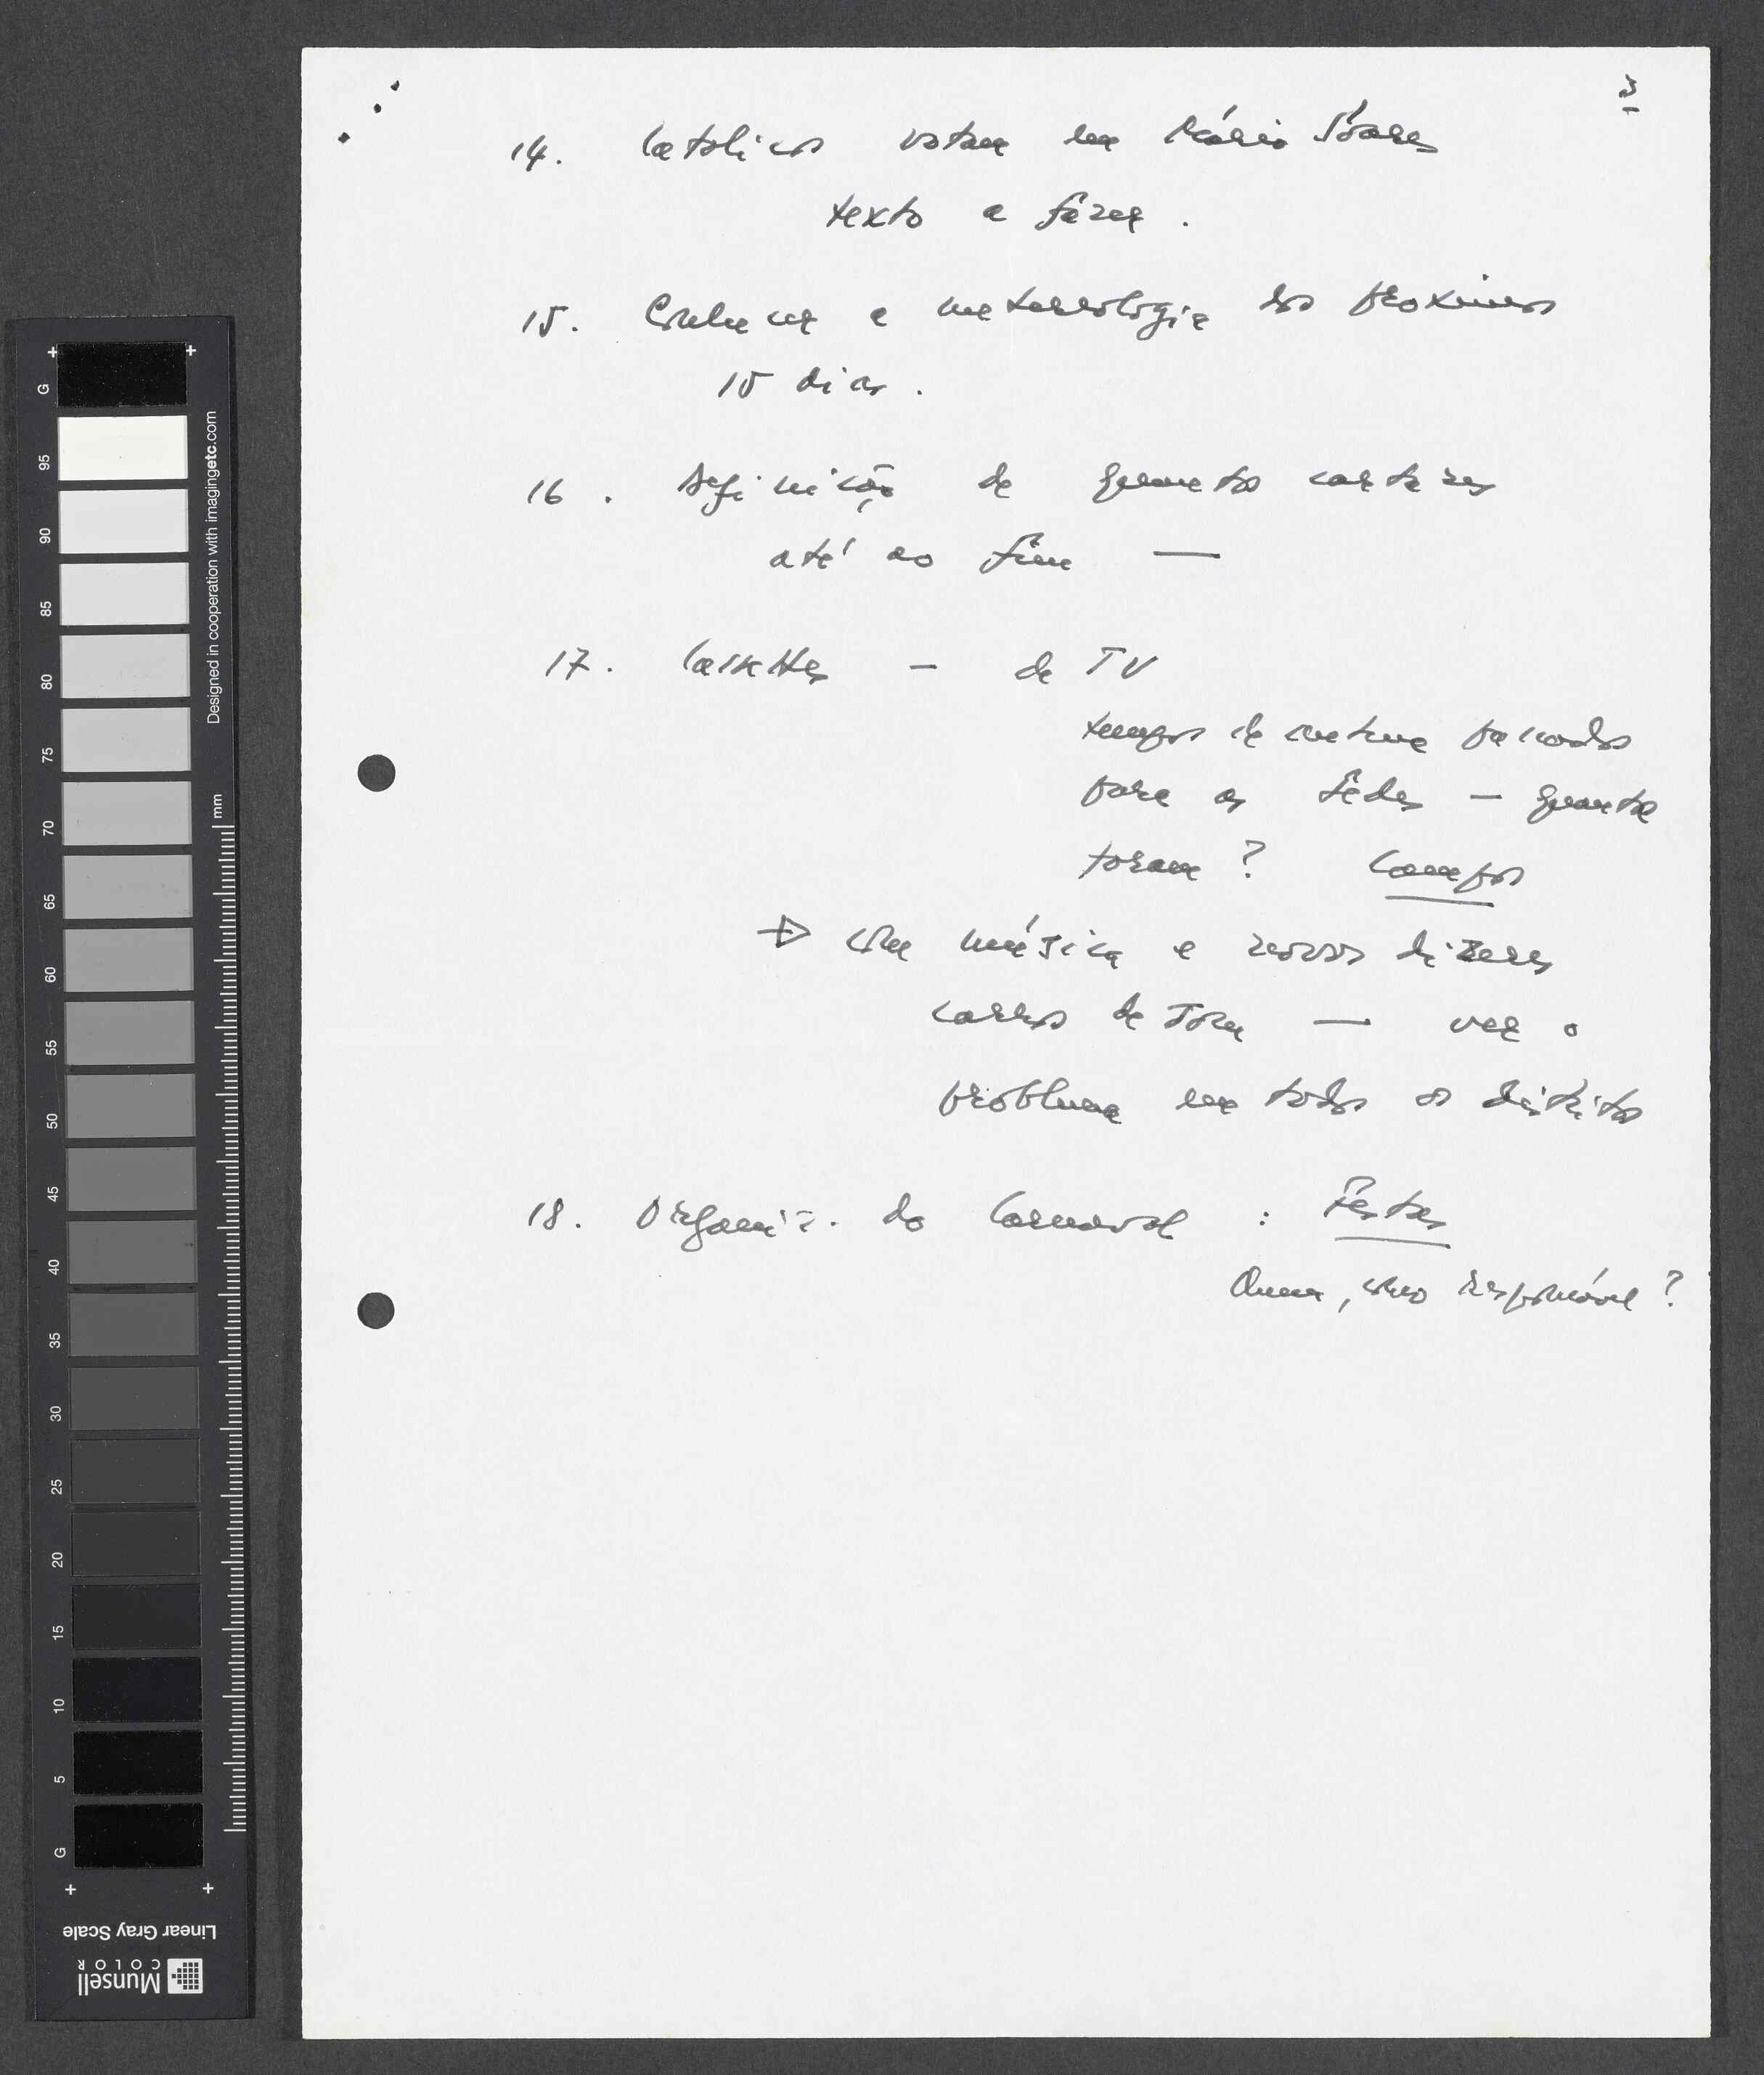 3
14. Católicos votam em Mário Sóares
texto a fazer.
15. Conhecer a meteorologia dos proximos
15 dias.
16. Definição de quantos cartazes
até ao fim —
17. Cassettes — de TV
tempos de antena passados
para as sedes — quantas
foram? Campos
→ com música e novos dizeres
carros de som — ver o
problema em todos os distritos
18. Organiz. do Carnaval : Festas
Quem, como responsável?
G
95
90
85
80
75
70
65
60
55
50
45
40
35
30
25
20
15
10
5
G
Designed in cooperation with imagingetc.com
mm
Linear Gray Scale
Munsell
COLOR